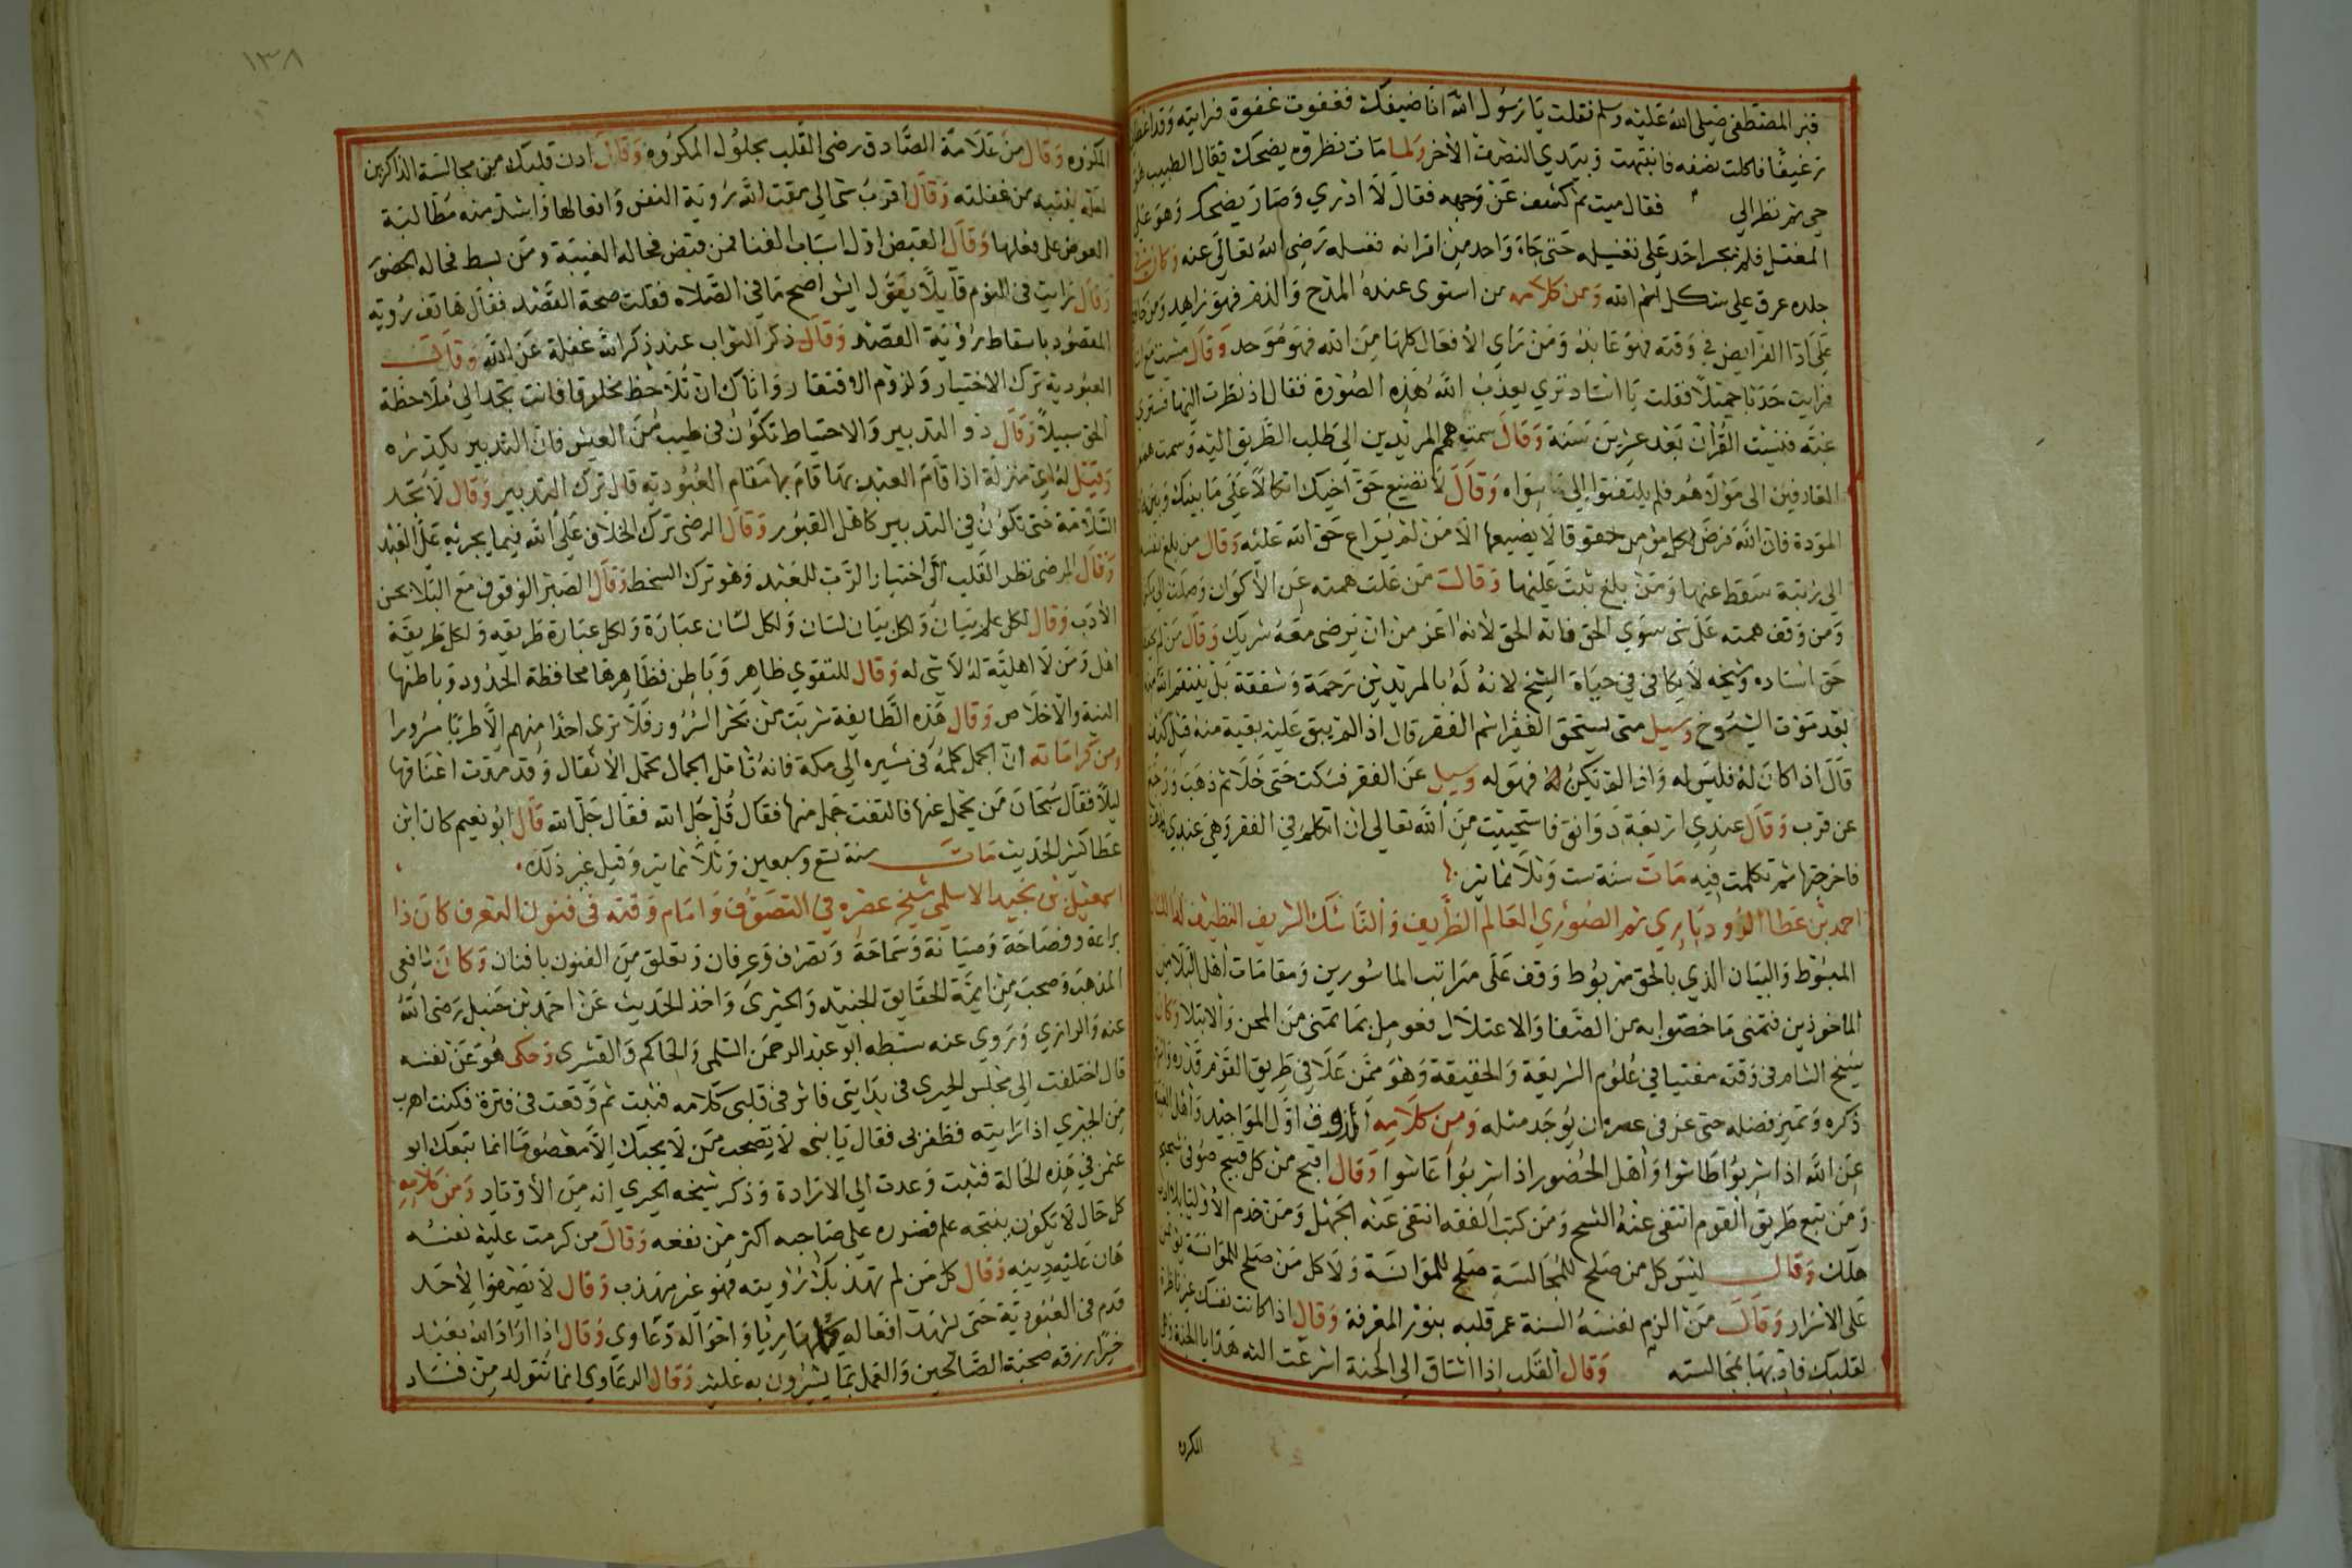 قبر المصطفى صلى الله عليه وسلم فقلت يا رسول الله انا ضيفك فغفوت غفوة فرايته وقد اعطاني
رغيفا فاكلت نصفه فانتبهت وبيدي النصف الاخر ولما مات نظروه يضحك فقال الطبيب هو
حي ثم نظر الي فقال ميت ثم كشف عن وجهه فقال لا ادري وصار يضحك وهو على
المغتسل فلم يجسر احد على تغسيله حتى جاء واحد من اقرانه فغسله رضي الله تعالى عنه وكان
جلده عرق على شكل اسم الله ومن كلامه من استوى عنده المدح والذم فهو زاهد ومن
على اداء الفرايض في وقته فهو عابد ومن راى الافعال كلها من الله فهو موحد وقال مشيت مع
فرايت حدثا جميلا فقلت يا استاد ترى يعذب الله هذه الصورة فقال اذ نظرت اليها فسترى
غبه فنسيت القران بعد عشرين سنة وقال همم المريدين الى طلب الطريق اليه وسمت
العارفين الى مولاهم فلم يلتفتوا الى سواه وقال لا تضيع حق اخيك اتكالا على ما بينك وبينه
المودة فان الله فرض لكل مؤمن حقوقا لا يضيعها الا من لم يراع حق الله عليه وقال من بلغ بنفسه
الى رتبة سقط عنها ومن بلغ ثبت عليها وقال من علت همته عن الاكوان وصلت الى
ومن وقف همته على شي سوى الحق فاته الحق لانه اعز من ان يرضى معه شريك وقال من
حق استاده وشيخه لا يكافى في حياة الشيخ لانه له بالمريدين رحمة وشفقة بل ينتقم الله
بعد موت الشيوخ وسيل متى يستحق الفقير اسم الفقر قال اذا لم يبق عليه بقية منه قيل كيف
قال اذا كان له فليس له واذا لم تكن له فهو له وسيل عن الفقر فسكت حتى خلا ثم ذهب ورجع
عن قرب وقال عندي اربعة دوانق فاستحييت من الله تعالى ان اتكلم في الفقر وهي عندي
فاخرجتها ثم تكلمت فيه مات سنة ست وثلاثماية
احمد بن عطا الروذباري ثم الصوري العالم الظريف والناسك الشريف النظيف له
المبسوط والبيان الذي بالحق مربوط وقف على مراتب الماسورين ومقامات اهل البلا من
الماخوذين فتمنى ما خصوا به من الضنا والاعتلال فعومل بما تمنى من المحن والابتلا وكان
شيخ الشام في وقته مفتيا في علوم الشريعة والحقيقة وهو ممن علا في طريق القوم قدره
ذكره وتميز فضله حتى عز في عصره ان يوجد مثله ومن كلامه الذوق اول المواجيد واهل الغيبة
عن الله اذا شربوا طاشوا واهل الحضور اذا شربوا عاشوا وقال اقبح من كل قبيح صوفي شحيح
ومن تبع طريق القوم انتفى عنه الشح ومن كتب الفقه انتفى عنه الجهل ومن خدم الاوليا بلا ادب
هلك وقال ليس كل من صلح للمجالسة صلح للموانسة ولا كل من صلح للموانسة
على الاسرار وقال من الزم نفسه السنة عمر قلبه بنور المعرفة وقال اذا كانت نفسك غير ناظرة
لقلبك فادبها بمجالسته وقال القلب اذا اشتاق الى الجنة اسرعت اليه هدايا الجنة وهي
المكروه
١٣٨
المكروه وقال من علامة الصادق رضى القلب بحلول المكروه وقال ادن قلبك من مجالسة الذاكرين
لعله ينتبه من غفلته وقال اقرب شي الى مقت الله روية النفس وافعالها واشد منه مطالبة
العوض على فعلها وقال القبض اول اسباب الفنا فمن قبض فحاله الغيبة ومن بسط فحاله الحضور
وقال رايت في النوم قايلا يقول ايش اصح ما في الصلاه فقلت صحة القصد فقال هاتف روية
المقصود باسقاط روية القصد وقال ذكر الثواب عند ذكر الله غفلة عن الله وقال
العبودية ترك الاختيار ولزوم الافتقار واياك ان تلاحظ مخلوقا فانت تجد الى ملاحظة
الحق سبيلا وقال ذو التدبير والاحتياط تكون في طيب من العيش فان التدبير يكدره
وقيل له اي منزلة اذا قام العبد بها قام بها مقام العبودية قال ترك التدبير وقال لا تجد
السلامة حتى تكون في التدبير كاهل القبور وقال الرضى ترك الخلاف على الله فيما يجريه على العبد
وقال الرضى نظر القلب الى اختيار الرب للعبد وهو ترك السخط وقال الصبر الوقوف مع البلا بحسن
الادب وقال لكل علم بيان ولكل بيان لسان ولكل لسان عبارة ولكل عبارة طريقه ولكل طريقة
اهل ومن لا اهلية له لا شي له وقال للتقوي ظاهر وباطن فظاهرها محافظة الحدود وباطنها
النية والاخلاص وقال هذه الطايفة شربت من بحر السرور فلا ترى احدا منهم الا طربا مسرورا
ومن كراماته ان الجمل كلمه في مسيره الى مكة فانه تامل الجمال تحمل الاثقال وقد مدت اعناقها
ليلا فقال سبحان من يحمل عنها فالتفت جمل منها فقال قل جل الله فقال جل الله قال ابو نعيم كان ابن
عطا كثير الحديث مات سنة تسع وسبعين وثلاثماية وقيل غير ذلك
اسمعيل بن نجيد الاسلمي شيخ عصره في التصوف وامام وقته في فنون التعرف كان ذا
براعة وفصاحة وصيانة وسماحة وتصرف وعرفان وتعلق من الفنون بافنان وكان شافعي
المذهب وصحب من ايمة الحقايق الجنيد والحيرى واخذ الحديث عن احمد بن حنبل رضى الله
عنه والرازي وروي عنه سبطه ابو عبد الرحمن السلمي والحاكم والقشرى وحكى هو عن نفسه
قال اختلفت الى مجلس الحيرى في بدايتي فاثر في قلبي كلامه فتبت ثم وقعت في فترة فكنت اهرب
من الحيري اذا رايته فظفر بي فقال يا بني لا تصحب من لا يحبك الا معصوما انما تبعك ابو
عثمن في هذه الحالة فتبت وعدت الى الارادة وذكر شيخه الحيري انه من الاوتاد ومن كلامه
كل حال لا تكون ينتجه علم فضرره على صاحبه اكثر من نفعه وقال من كرمت عليه نفسه
هان عليه دينه وقال كل من لم تهذبك رؤيته فهو غير مهذب وقال لا يصفو لاحد
قدم في العبودية حتى يشهد افعاله كلها ريا واحواله دعاوى وقال اذا اراد الله بعبد
خيرا رزقه صحبة الصالحين والعمل بما يشيرون به عليه وقال الدعاوى انما تتولد من فساد